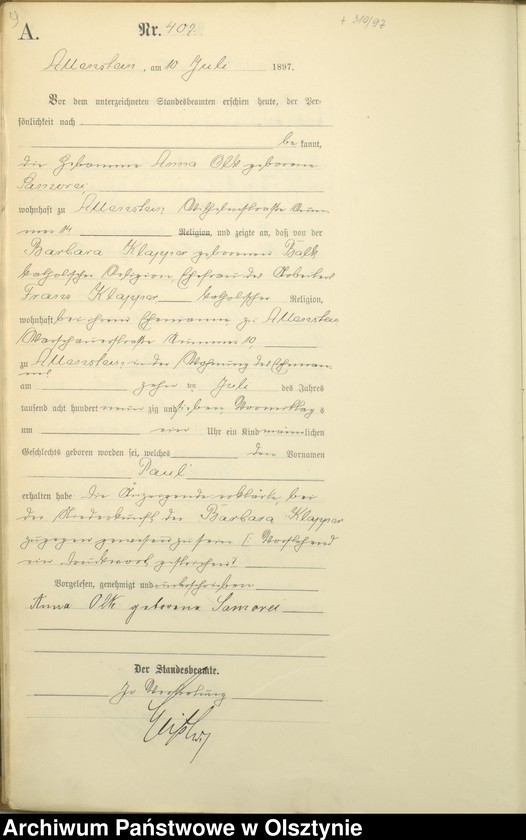 A.
Nr. 407
† 310/97
Allenstein, am 10 Juli 1897.
Vor dem unterzeichneten Standesbeamten erschien heute, der Per-
sönlichkeit nach
be kannt,
die Hebamme Anna Olk geborene
Samorei,
wohnhaft zu Allenstein Wilhelmstraße Num-
mer 14 Religion, und zeigte an, daß von der
Barbara Klapper geborenen Balk
katholischer Religion, Ehefrau des Arbeiters
Franz Klapper katholischer Religion,
wohnhaft bei ihrem Ehemanne zu Allenstein
Warschauerstraße Nummer 10,
zu Allenstein in der Wohnung des Eheman-
nes
am zehn ten Juli des Jahres
tausend acht hundert neun zig und sieben Vormittags
um ein Uhr ein Kind männlichen
Geschlechts geboren worden sei, welches den Vornamen
Paul
erhalten habe die Anzeigende erklärte, bei
der Niederkunft der Barbara Klapper
zugegen gewesen zu sein. (: Vorstehend
ein Druckwort gestrichen:)
Vorgelesen, genehmigt und unterschrieben
Anna Olk geborene Samorei
Der Standesbeamte.
In Vertretung
Archiwum Państwowe w Olsztynie